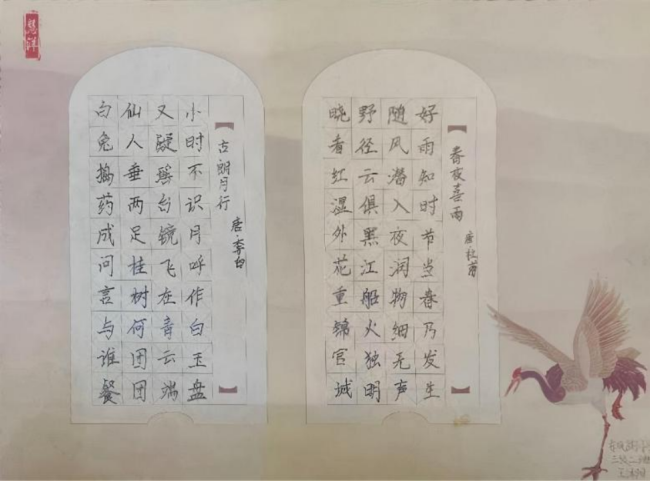 春夜喜雨
唐·杜甫
好雨知时节当春乃发生
随风潜入夜润物细无声
野径云俱黑江船火独明
晓看红湿处花重锦官城
古朗月行
唐·李白
小时不识月呼作白玉盘
又疑瑶台镜飞在青云端
仙人垂两足桂树何团团
白兔捣药成问言与谁餐